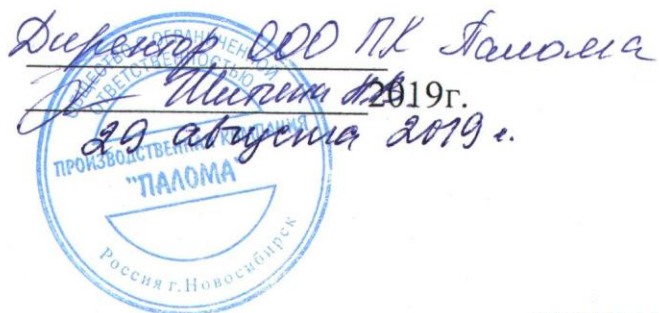 Директор ООО ПК Палома
2019г.
29 августа 2019 г.
ОБЩЕСТВО С ОГРАНИЧЕННОЙ
ОТВЕТСТВЕННОСТЬЮ
ПРОИЗВОДСТВЕННАЯ КОМПАНИЯ
"ПАЛОМА"
Россия г.Новосибирск